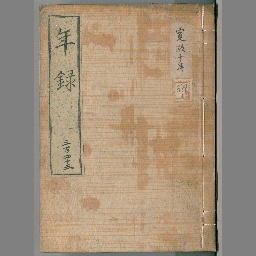 寛政十年
年録
三百四十五